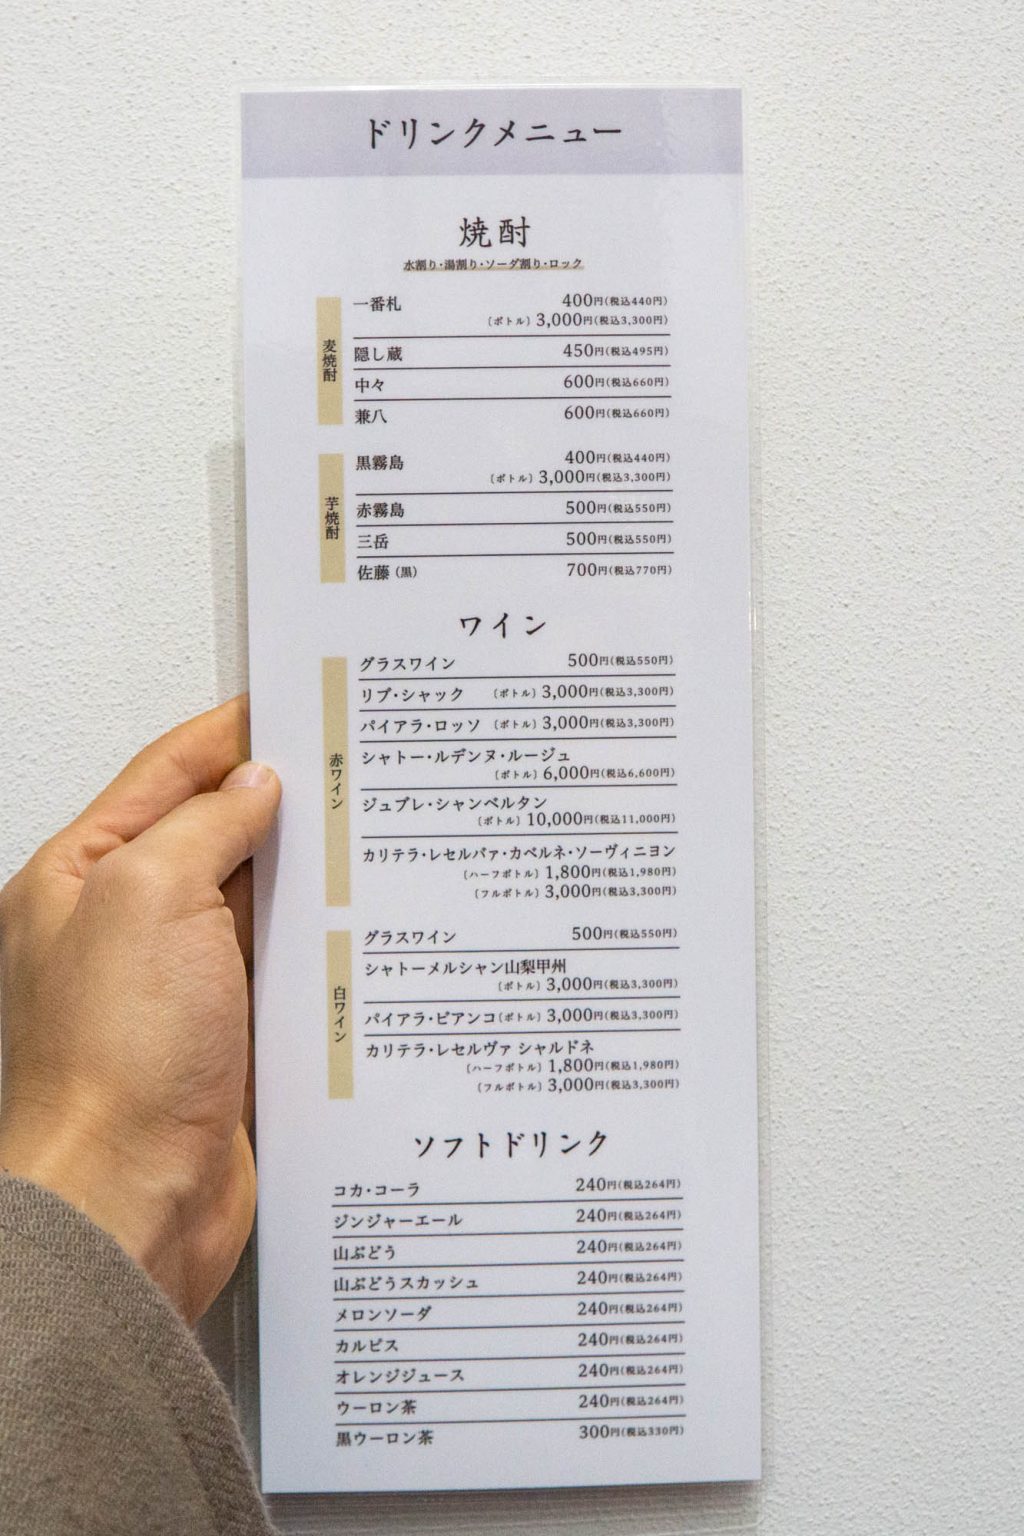 ドリンクメニュー
焼酎
水割り・湯割り・ソーダ割り・ロック
麦焼酎
一番札 400円(税込440円)
〔ボトル〕3,000円(税込3,300円)
隠し蔵 450円(税込495円)
中々 600円(税込660円)
兼八 600円(税込660円)
芋焼酎
黒霧島 400円(税込440円)
〔ボトル〕3,000円(税込3,300円)
赤霧島 500円(税込550円)
三岳 500円(税込550円)
佐藤(黒) 700円(税込770円)
ワイン
赤ワイン
グラスワイン 500円(税込550円)
リブ・シャック 〔ボトル〕3,000円(税込3,300円)
パイアラ・ロッソ 〔ボトル〕3,000円(税込3,300円)
シャトー・ルデンヌ・ルージュ
〔ボトル〕6,000円(税込6,600円)
ジュブレ・シャンベルタン
〔ボトル〕10,000円(税込11,000円)
カリテラ・レセルバァ・カベルネ・ソーヴィニヨン
〔ハーフボトル〕1,800円(税込1,980円)
〔フルボトル〕3,000円(税込3,300円)
白ワイン
グラスワイン 500円(税込550円)
シャトーメルシャン山梨甲州
〔ボトル〕3,000円(税込3,300円)
パイアラ・ビアンコ〔ボトル〕3,000円(税込3,300円)
カリテラ・レセルヴァ シャルドネ
〔ハーフボトル〕1,800円(税込1,980円)
〔フルボトル〕3,000円(税込3,300円)
ソフトドリンク
コカ・コーラ 240円(税込264円)
ジンジャーエール 240円(税込264円)
山ぶどう 240円(税込264円)
山ぶどうスカッシュ 240円(税込264円)
メロンソーダ 240円(税込264円)
カルピス 240円(税込264円)
オレンジジュース 240円(税込264円)
ウーロン茶 240円(税込264円)
黒ウーロン茶 300円(税込330円)